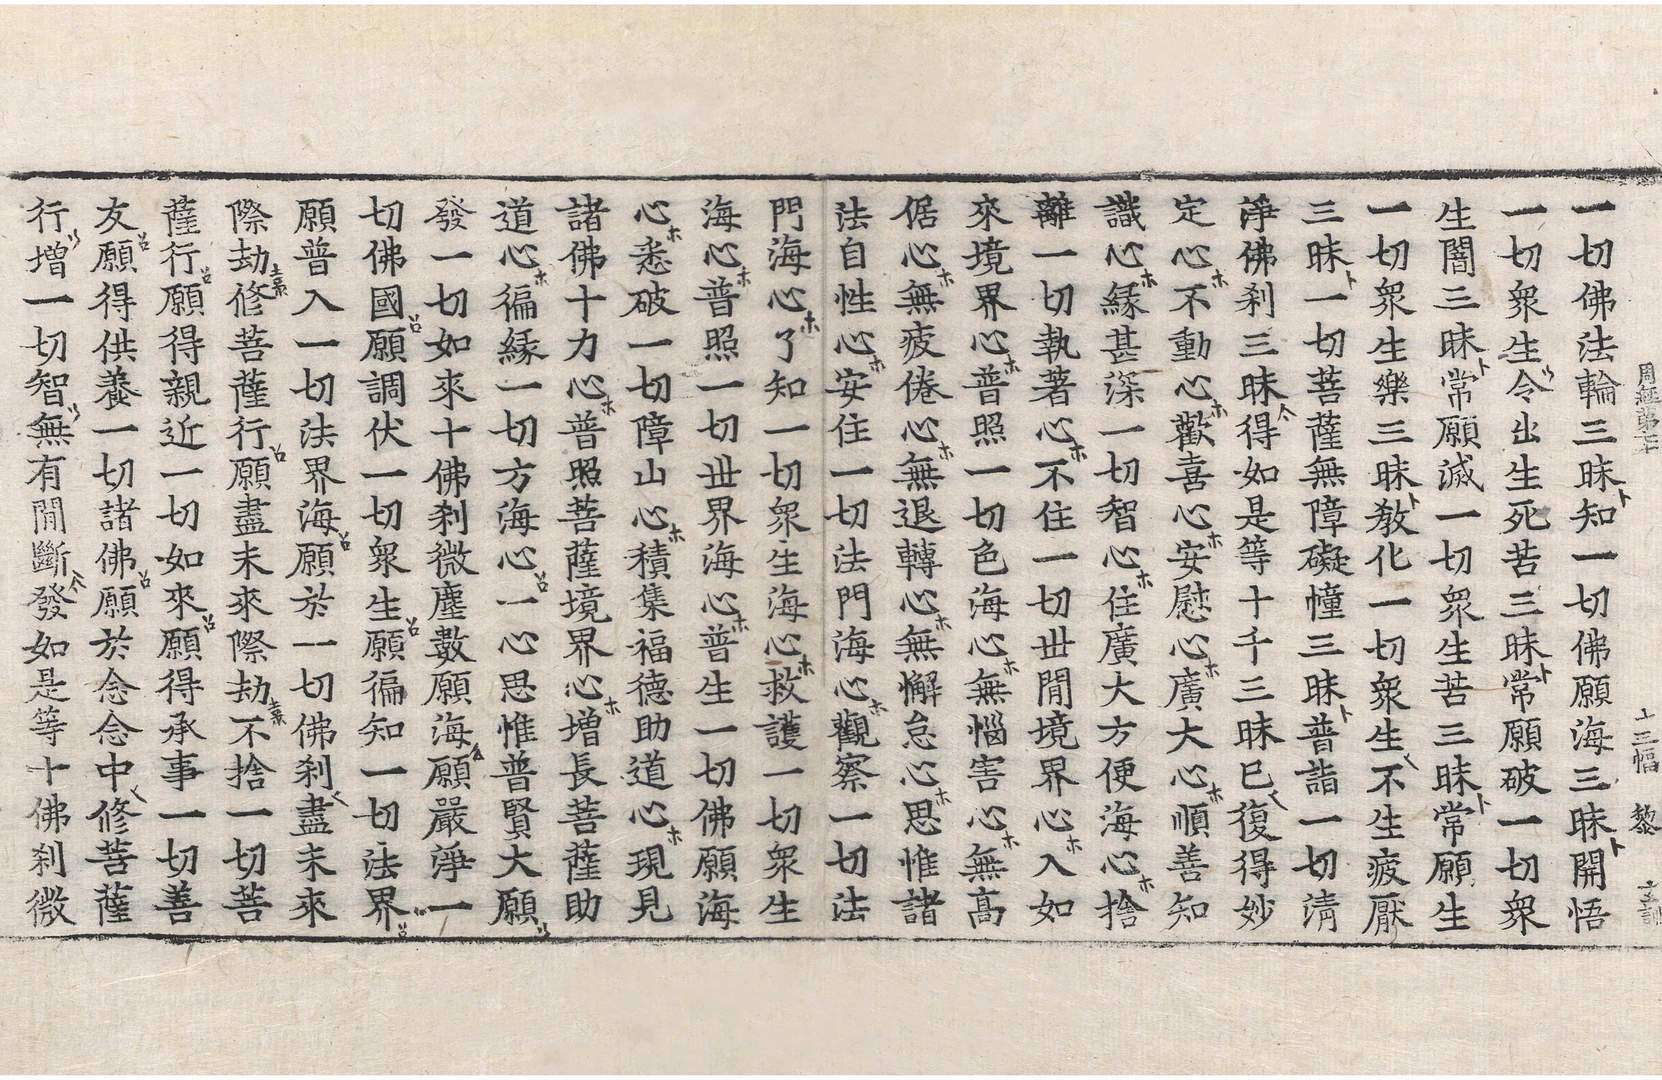 周經第七　十三幅　黎
一切佛法輪三昧知一切佛願海三昧開悟
一切衆生令出生死苦三昧常願破一切衆
生闇三昧常願滅一切衆生苦三昧常願生
一切衆生樂三昧敎化一切衆生不生疲厭
三昧一切菩薩無障礙幢三昧普詣一切淸
淨佛刹三昧得如是等十千三昧已復得妙
定心不動心歡喜心安慰心廣大心順善知
識心緣甚深一切智心住廣大方便海心捨
離一切執著心不住一切丗閒境界心入如
來境界心普照一切色海心無惱害心無高
倨心無疲倦心無退轉心無懈怠心思惟諸
法自性心安住一切法門海心觀察一切法
門海心了知一切衆生海心救護一切衆生
海心普照一切丗界海心普生一切佛願海
心悉破一切障山心積集福德助道心現見
諸佛十力心普照菩薩境界心增長菩薩助
道心徧緣一切方海心一心思惟普賢大願
發一切如來十佛刹微塵數願海願嚴淨一
切佛國願調伏一切衆生願徧知一切法界
願普入一切法界海願於一切佛刹盡未來
際劫修菩薩行願盡未來際劫不捨一切菩
薩行願得親近一切如來願得承事一切善
友願得供養一切諸佛願於念念中修菩薩
行增一切智無有閒斷發如是等十佛刹微